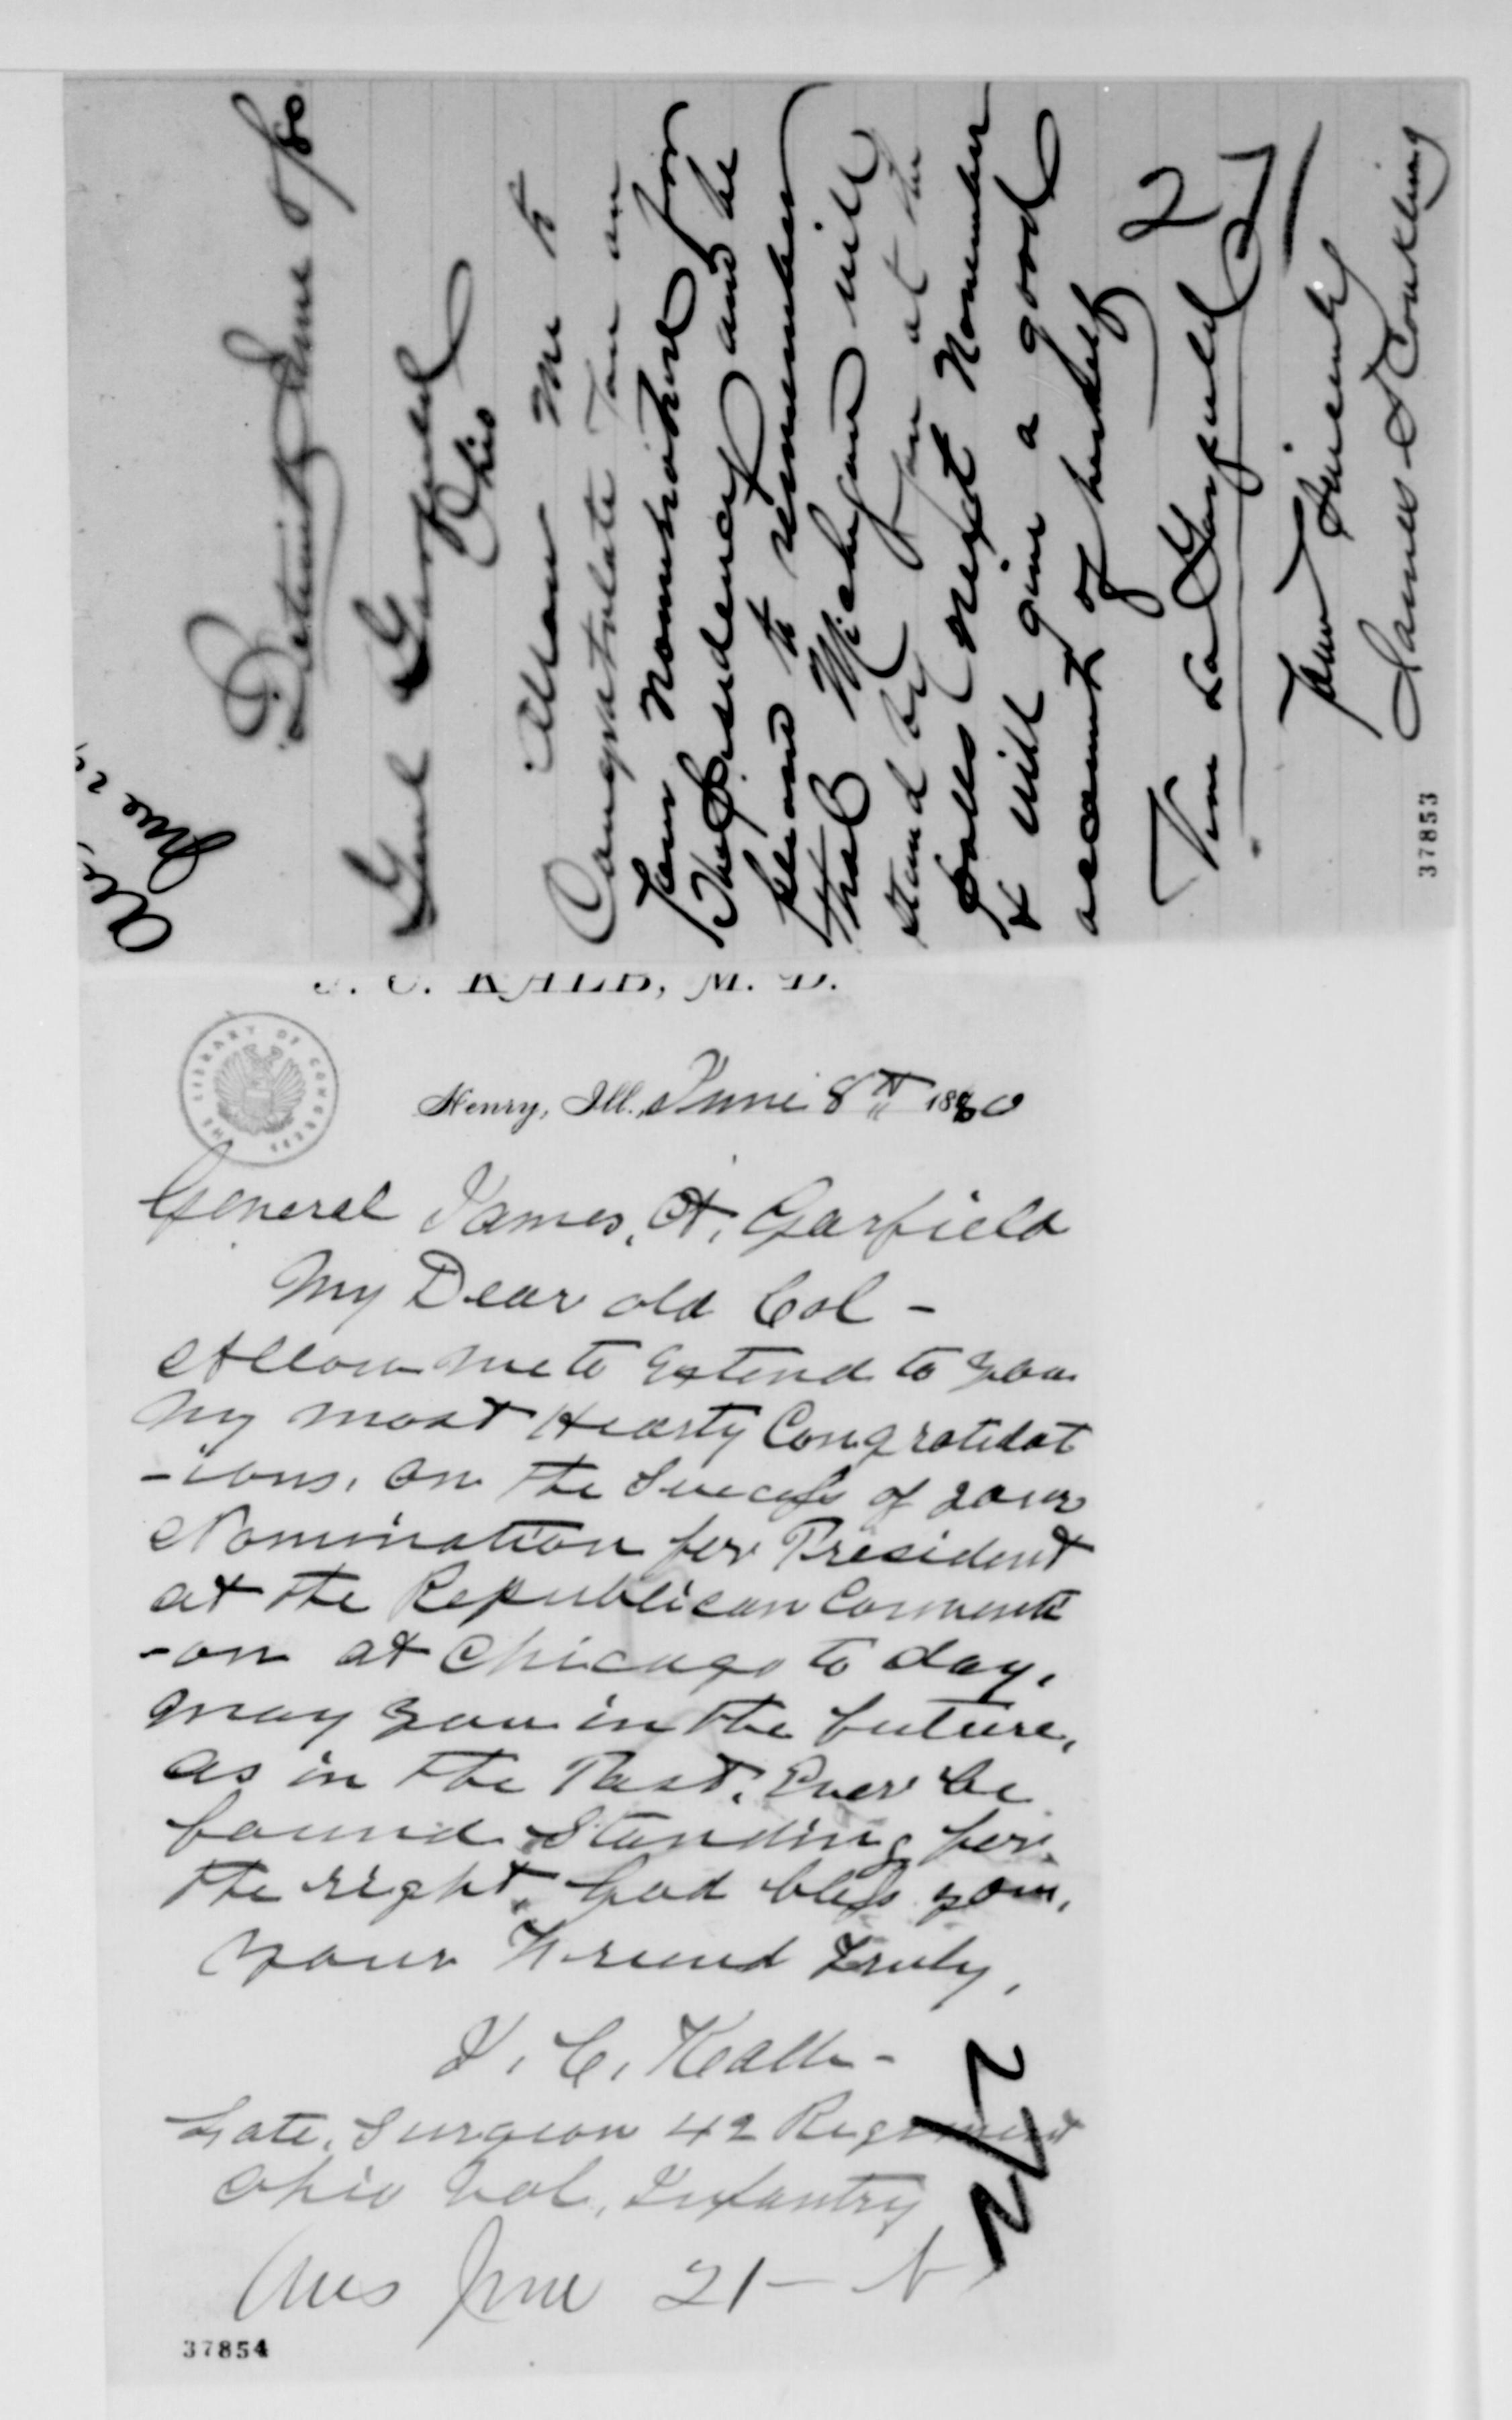 Ans
June 29
Detroit June 8/80
Genl Garfield
Ohio
Allow me to
Congratulate you on
your Nomination for
The Presidency and be
pleased to remember
that Michigan will
stand by you at the
Polls next November
& will give a good
account of herself
Vive La Garfield
Yours Sincerely
James A Conkling
37853
J. C. KALB, M. D.
THE LIBRARY OF CONGRESS
Henry, Ill., June 8th 1880
General James, A, Garfield
My Dear old Col -
Allow me to Extend to you
My most Hearty Congratulat
-ions, on the Success of your
Nomination for President
at the Republican Conventi
-on at Chicago to day,
may you in the future,
as in the Past, Ever be
found Standing for
the right, God bless you,
your Friend Truly,
J. C. Kalb -
Late, Surgeon 42 Regiment
Ohio Vol, Infantry
Ans June 21 - N
37854